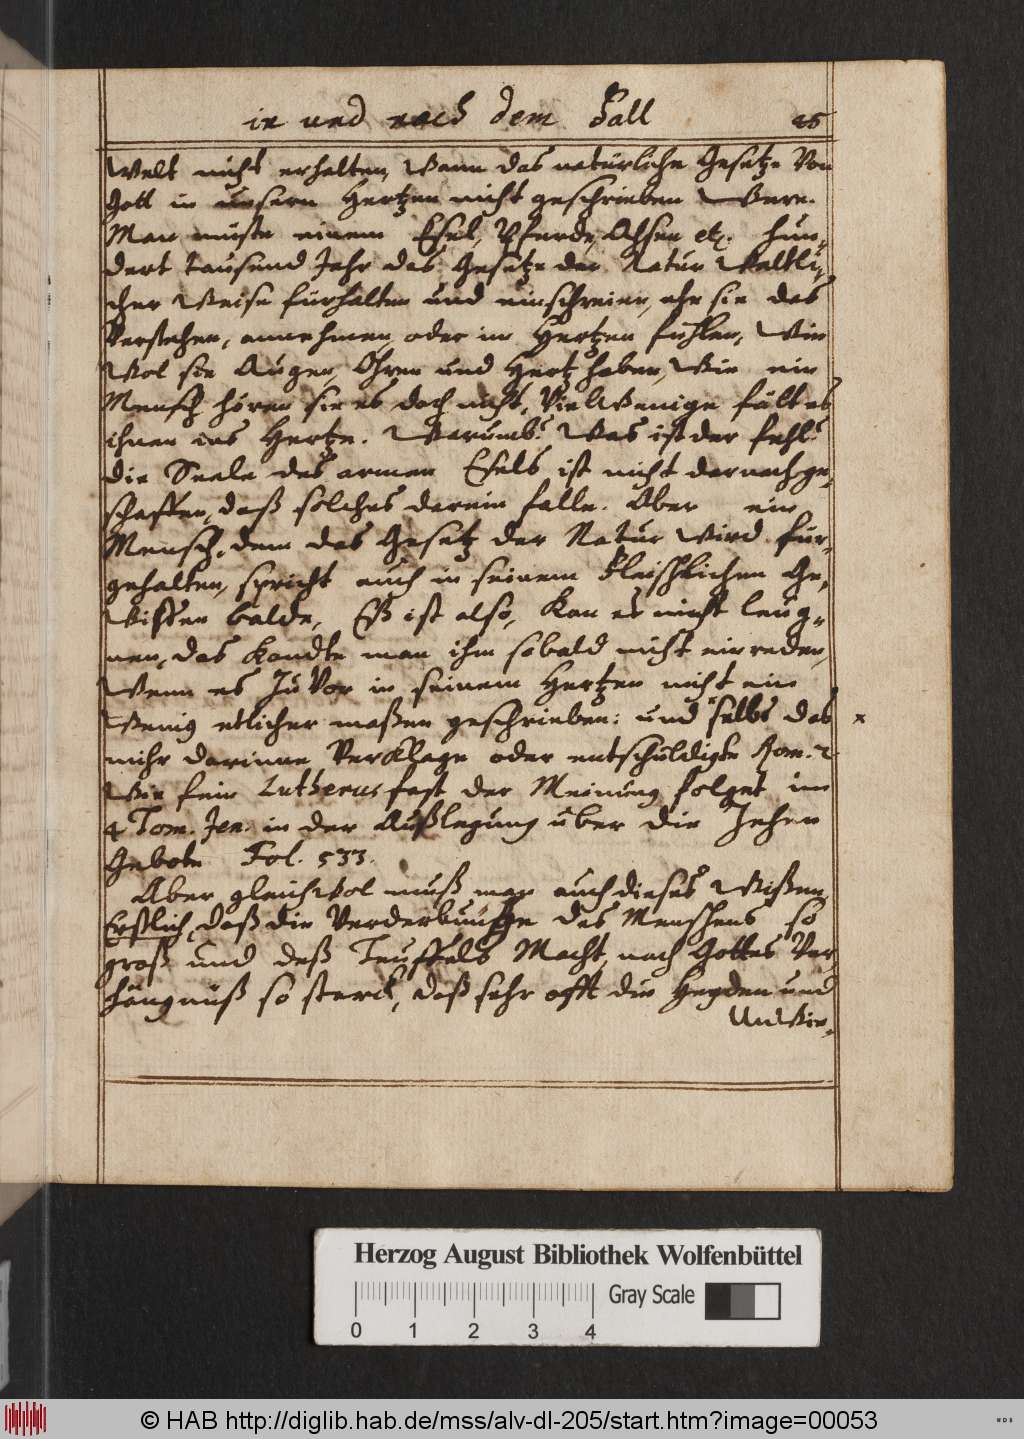 in und nach dem Fall 25
Welt nicht erhalten, Wann das natürliche Gesetze Von
Gott in unsern Hertzen nicht geschrieben Were.
Man müste einem Esel, Pferde, Ochsen etc. hun-
dert tausend Jahr das Gesetze der Natur Weltli-
cher Weise fürhalten und einschreien, ehe sie das
Verstehen, annehmen, oder im Hertzen fühlen, Wie
Wol sie Augen, Ohren und Hertz haben, Wie ein
Mensch hören sie es doch nicht, Viel Weniger fält es
ihnen ins Hertze. Warumb? Was ist der fehl?
die Seele des armen Esels ist nicht darnach ge-
schaffen, daß solches darein falle. Aber ein
Mensch, dem das Gesetz der Natur Wird für-
gehalten, spricht auch in seinem fleischlichen Ge-
Wissen balde, Eß ist also, Kan es nicht leug-
nen, das Kondte man ihm sobald nicht einreden,
Wenn es zuVor in seinem Hertzen nicht ein
Wenig etlicher maßen geschrieben: und selbs das x
mehr darinne Verklage oder entschüldigte Rom. 2
Wie fein Lutherus fast der Meinung folget im
4 Tom. Jen. in der Außlegung uber die Zehen
Gebote Fol. 533.
Aber gleichwol muß man auch dieses Wißen,
Erstlich, daß die Verderbnuße des Menschens so
groß und deß Teuffels Macht, nach Gottes Ver
hängnüß so starck, daß sehr offt die Heyden und
UnWie-
Herzog August Bibliothek Wolfenbüttel
Gray Scale
0 1 2 3 4
© HAB http://diglib.hab.de/mss/alv-dl-205/start.htm?image=00053